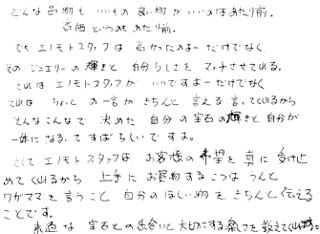 どんな品物も いいもの 良い物が いいのはあたり前。
高価 というのも あたり前。
でも エノモトスタッフは 高かったのよーだけでなく
そのジュエリーの輝きと 自分らしさを マッチさせてくる。
これは エノモトスタッフが いいですよーだけでなく
それは ちょっとの一言が きちんと 言える 言ってくれるから
そんなこんなで 決めた 自分の宝石の輝きと自分が
一体になるってすばらしいですよ。
そして エノモトスタッフは お客様の希望を真に受け止
めてくれるから 上手にお買物するこつはうんと
ワガママを言うこと 自分のほしい物をきちんと伝える
ことです。
素適な 宝石との出合いと大切にする楽しさを教えてくれます。